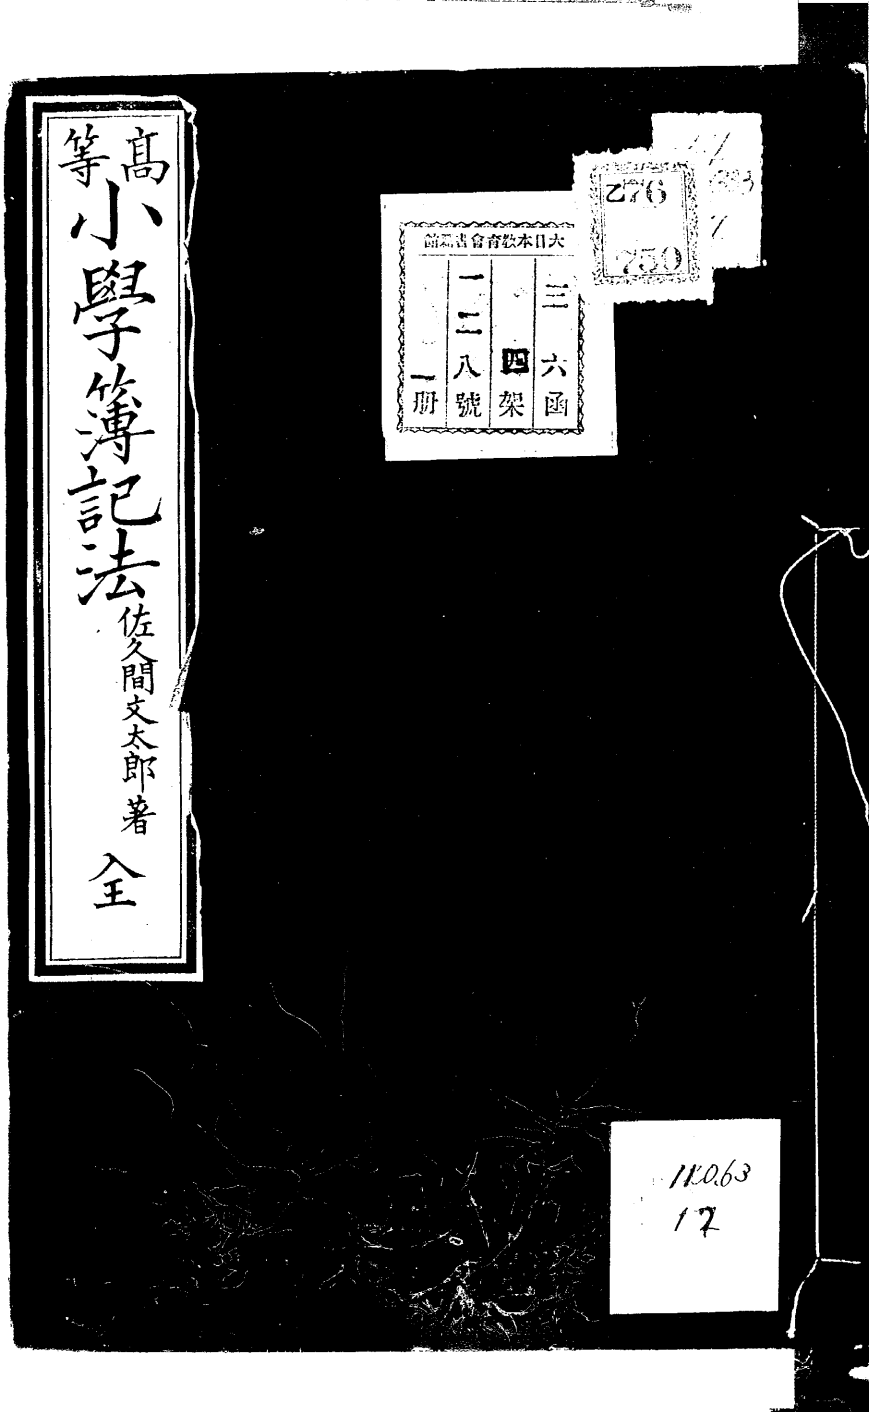 高等小學簿記法
佐久間文太郎著
全
大日本教育會書籍館
三六函
四架
一二八號
一册
乙76
750
1K0.63
17